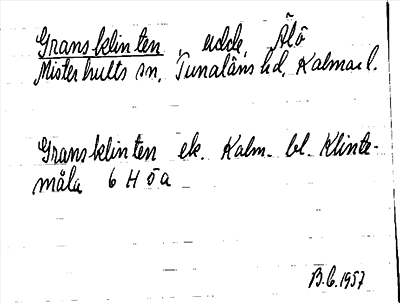 Gransklinten, udde, Älö
Misterhults sn, Tunaläns hd, Kalmar l.
Gransklinten ek. Kalm. bl. Klinte-
måla 6 H ö a
B.G. 1957